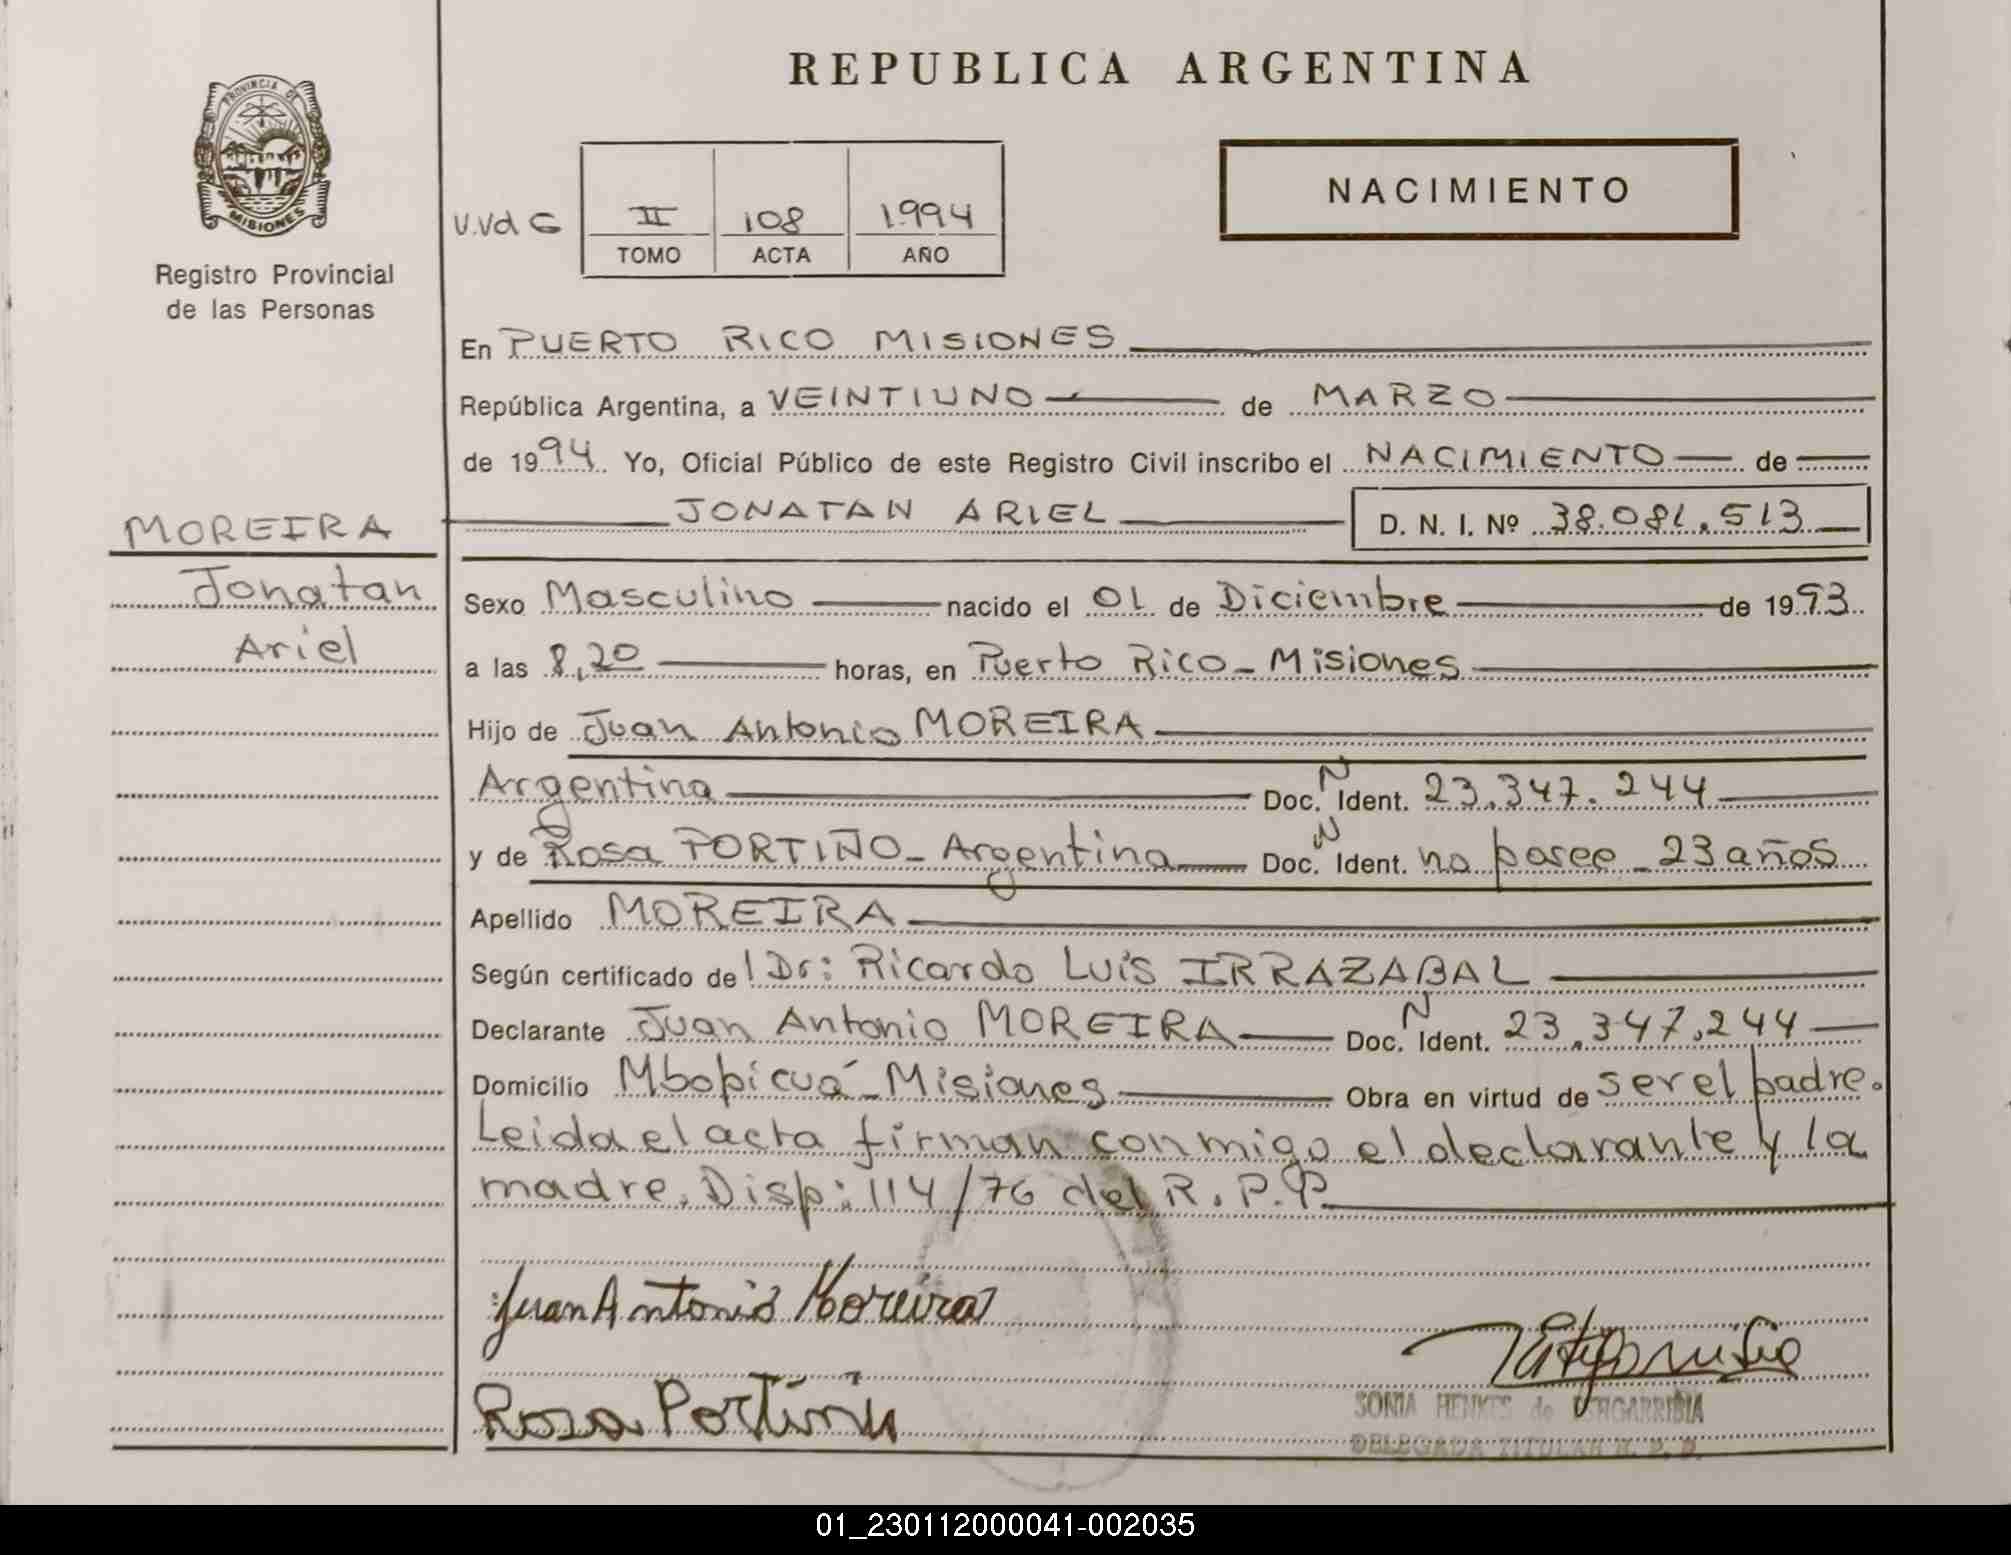 REPUBLICA ARGENTINA
PROVINCIA DE
MISIONES
Registro Provincial
de las Personas
NACIMIENTO
U.Vd G
II 108 1994
TOMO ACTA AÑO
En PUERTO RICO MISIONES
República Argentina, a VEINTIUNO de MARZO
de 1994 Yo, Oficial Público de este Registro Civil inscribo el NACIMIENTO de
JONATAN ARIEL D. N. I. Nº 38.081.513
MOREIRA
Jonatan
Ariel
Sexo Masculino nacido el 01 de Diciembre de 1993
a las 8,20 horas, en Puerto Rico - Misiones
Hijo de Juan Antonio MOREIRA
Argentina Doc. N Ident. 23.347.244
y de Rosa PORTIÑO - Argentina Doc. N Ident. no posee - 23 años
Apellido MOREIRA
Según certificado del Dr: Ricardo Luis IRRAZABAL
Declarante Juan Antonio MOREIRA Doc. N Ident. 23.347.244
Domicilio Mbopicuá - Misiones Obra en virtud de ser el padre.
Leida el acta firman conmigo el declarante y la
madre. Disp: 114/76 del R.P.P
Juan Antonio Moreira
Rosa Portiño
SONIA HENKES de
DELEGADA TITULAR R. P. P.
01_230112000041-002035